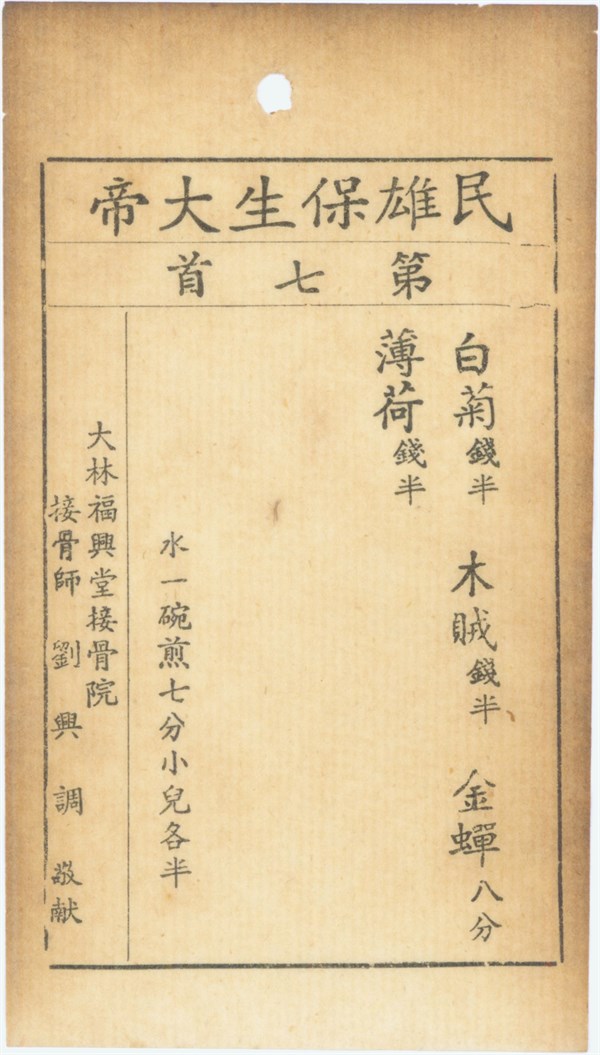 民雄保生大帝
第七首
白菊錢半 木賊錢半 金蟬八分
薄荷錢半
水一碗煎七分小兒各半
大林福興堂接骨院
接骨師 劉興調 敬献